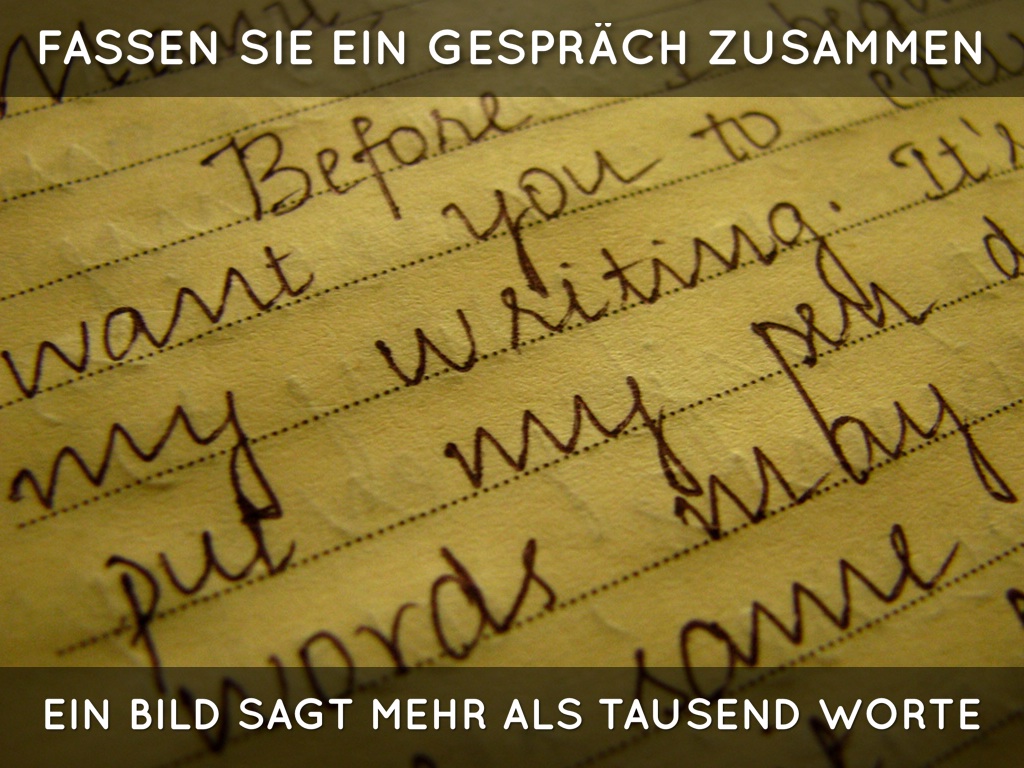 FASSEN SIE EIN GESPRÄCH ZUSAMMEN
Before I begin
want you to
my writing. It's
put my pen d
words in bay
some
EIN BILD SAGT MEHR ALS TAUSEND WORTE